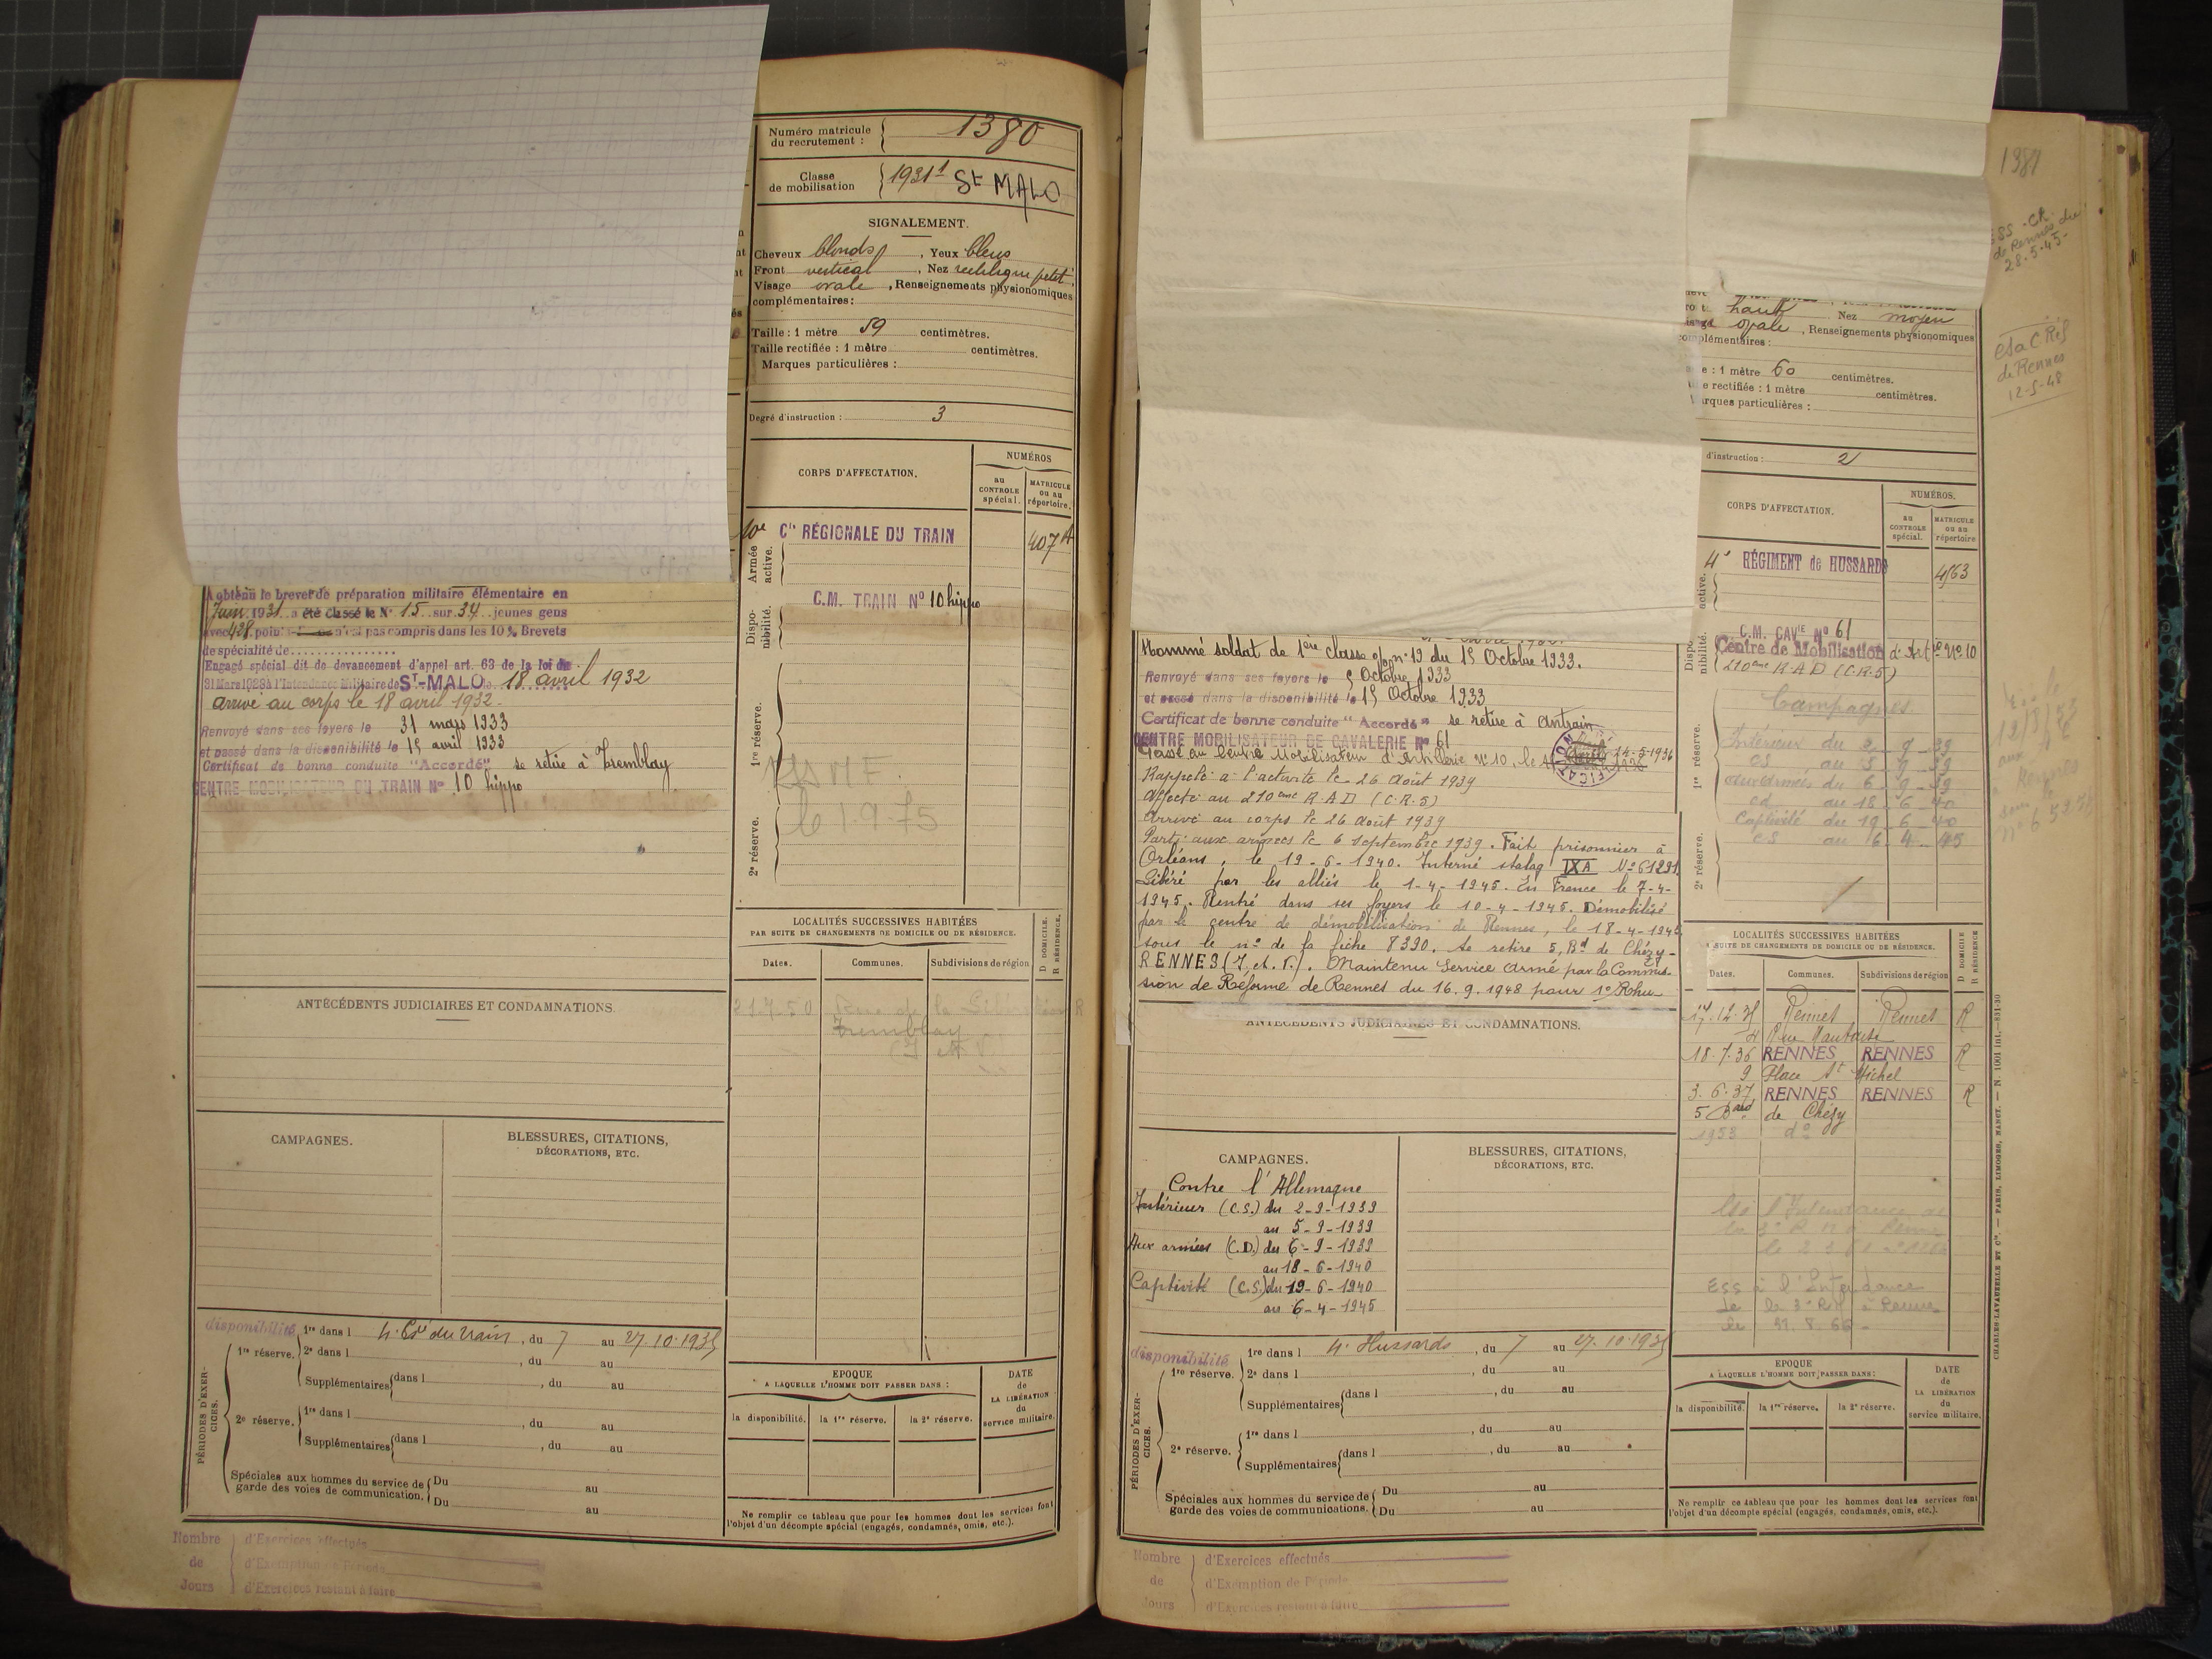 Numéro matricule
du recrutement : 1380
Classe
de mobilisation 1931¹ St MALO
SIGNALEMENT.
Cheveux blonds, Yeux bleus
Front vertical, Nez rectiligne petit.
Visage ovale, Renseignements physionomiques
complémentaires :
Taille : 1 mètre 59 centimètres.
Taille rectifiée : 1 mètre centimètres.
Marques particulières :
Degré d'instruction : 3
CORPS D'AFFECTATION.
NUMÉROS
au CONTROLE spécial.
MATRICULE ou au répertoire.
Armée active.
10e Cie RÉGIONALE DU TRAIN 407 A
Disponibilité.
C.M. TRAIN N° 10 hippo
1re réserve.
2e réserve.
le 1.9.75
A obtenu le brevet de préparation militaire élémentaire en
Juin 1931 a été classé le N° 15 sur 34 jeunes gens
avec 428 points n'est pas compris dans les 10% Brevets
de spécialité de
Engagé spécial dit de devancement d'appel art. 63 de la loi du
31 Mars 1928 à l'Intendance Militaire de ST-MALO le 18 avril 1932
arrivé au corps le 18 avril 1932.
Renvoyé dans ses foyers le 31 mars 1933
et passé dans la disponibilité le 15 avril 1933
Certificat de bonne conduite "Accordé" se retire à Tremblay
CENTRE MOBILISATEUR DU TRAIN N° 10 hippo
ANTÉCÉDENTS JUDICIAIRES ET CONDAMNATIONS.
CAMPAGNES.
BLESSURES, CITATIONS,
DÉCORATIONS, ETC.
LOCALITÉS SUCCESSIVES HABITÉES
PAR SUITE DE CHANGEMENTS DE DOMICILE OU DE RÉSIDENCE.
D DOMICILE.
R RÉSIDENCE.
Dates. Communes. Subdivisions de région
21.7.50 Rue de la Libération R
Tremblay
(I et V)
PÉRIODES D'EXERCICES.
disponibilité
1re réserve.
1re dans l 4e Cie du train, du 7 au 27.10.1935
2e dans l , du au
Supplémentaires dans l , du au
2e réserve.
1re dans l , du au
Supplémentaires dans l , du au
Spéciales aux hommes du service de
garde des voies de communication.
Du au
Du au
EPOQUE
A LAQUELLE L'HOMME DOIT PASSER DANS :
la disponibilité. la 1re réserve. la 2e réserve.
DATE
de
LA LIBÉRATION
du
service militaire.
Ne remplir ce tableau que pour les hommes dont les services font
l'objet d'un décompte spécial (engagés, condamnés, omis, etc.).
Nombre
de
Jours
d'Exercices effectués
d'Exemption de Période
d'Exercices restant à faire
1381
ESS - CR
de Rennes du
28.5.45
CR Ref
de Rennes
12-5-48
haut Nez moyen
ovale, Renseignements physionomiques
complémentaires :
: 1 mètre 60 centimètres.
rectifiée : 1 mètre centimètres.
Marques particulières :
d'instruction : 2
CORPS D'AFFECTATION.
NUMÉROS.
au CONTROLE spécial.
MATRICULE ou au répertoire
active.
4e RÉGIMENT de HUSSARDS 4563
Disponibilité.
C.M. CAVIE N° 61
Centre de Mobilisation d'Artie N° 10
210ème R A D (C.R.5)
1re réserve.
Campagnes
Intérieur du 2 - 9 - 39
CS au 5 - 9 - 39
aux armées du 6 - 9 - 39
cd au 18 - 6 - 40
Captivité du 19 - 6 - 40
CS au 6 - 4 - 45
2e réserve.
Nommé soldat de 1ère classe n° 19 du 15 Octobre 1933.
Renvoyé dans ses foyers le 5 Octobre 1933
et passé dans la disponibilité le 15 Octobre 1933
Certificat de bonne conduite "Accordé" se retire à Antrain
CENTRE MOBILISATEUR DE CAVALERIE N° 61
Passé au Centre Mobilisation d'Artillerie N° 10, le 14-5-1936
Rappelé à l'activité le 26 Août 1939
Affecté au 210ème R A D (C.R.5)
Arrivé au corps le 26 Août 1939
Parti aux armées le 6 Septembre 1939. Fait prisonnier à
Orléans, le 19-6-1940. Interné stalag IXA N° 61291
Libéré par les alliés le 1-4-1945. En France le 7-4-
1945. Rentré dans ses foyers le 10-4-1945. Démobilisé
par le centre de démobilisation de Rennes, le 18-4-1945
sous le n° de la fiche 8390. Se retire 5, Bd de Chézy-
RENNES (I. et. V.). Maintenu Service armé par la Commis-
sion de Réforme de Rennes du 16.9.1948 pour 1°/Rhu-
ANTÉCÉDENTS JUDICIAIRES ET CONDAMNATIONS.
CAMPAGNES.
Contre l'Allemagne
Intérieur (C.S.) du 2-9-1939
au 5-9-1939
Aux armées (C.D.) du 6-9-1939
au 18-6-1940
Captivité (C.S.) du 19-6-1940
au 6-4-1945
BLESSURES, CITATIONS,
DÉCORATIONS, ETC.
LOCALITÉS SUCCESSIVES HABITÉES
A SUITE DE CHANGEMENTS DE DOMICILE OU DE RÉSIDENCE.
D DOMICILE
R RÉSIDENCE
Dates. Communes. Subdivisions de région
17.12.35 Rennes Rennes R
18.7.36 RENNES RENNES R
9 Place St Michel
3.6.37 RENNES RENNES R
5 Bard de Chézy
1953 do
Ess à l'Intendance
de la 3e RM à Rennes
PÉRIODES D'EXERCICES.
disponibilité
1re réserve.
1re dans l 4e Hussards, du 7 au 27.10.1935
2e dans l , du au
Supplémentaires dans l , du au
2e réserve.
1re dans l , du au
Supplémentaires dans l , du au
Spéciales aux hommes du service de
garde des voies de communications.
Du au
Du au
EPOQUE
A LAQUELLE L'HOMME DOIT PASSER DANS :
la disponibilité. la 1re réserve. la 2e réserve.
DATE
de
LA LIBÉRATION
du
service militaire.
Ne remplir ce tableau que pour les hommes dont les services font
l'objet d'un décompte spécial (engagés, condamnés, omis, etc.).
CHARLES-LAVAUZELLE ET Cie. — PARIS, LIMOGES, NANCY. — N. 1001 int.—831-30
Nombre
de
Jours
d'Exercices effectués
d'Exemption de Période
d'Exercices restant à faire